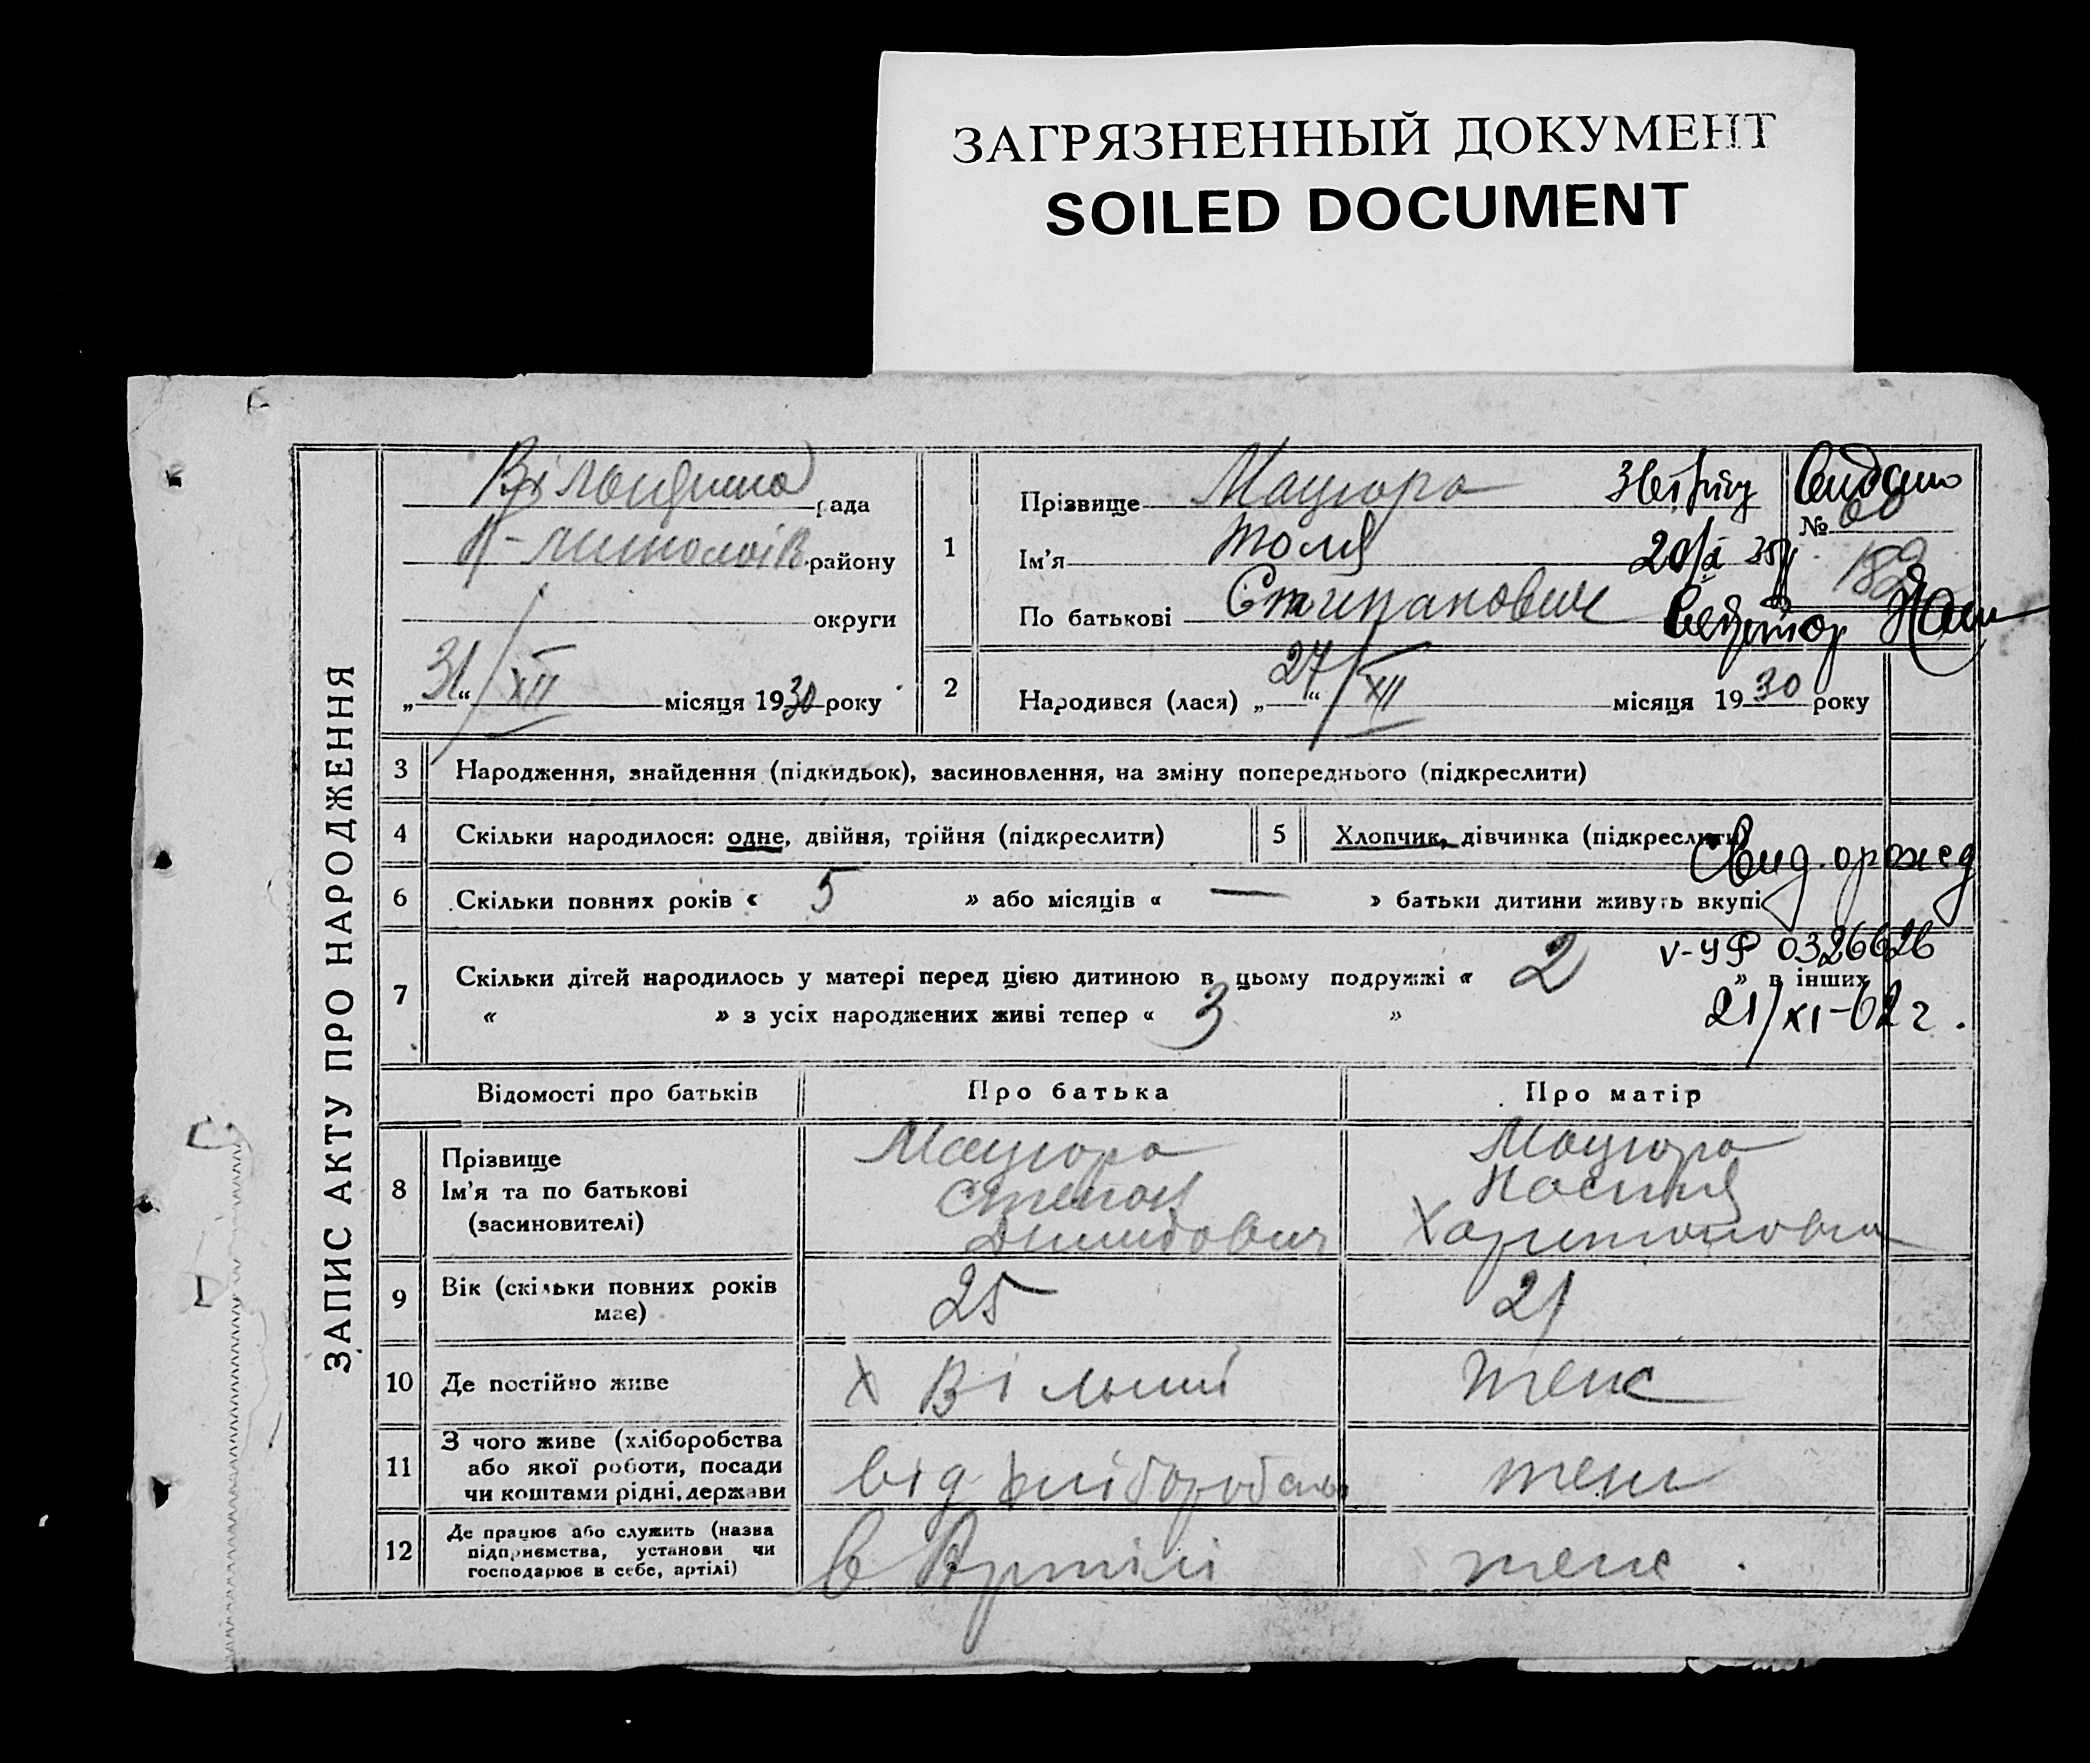 ЗАГРЯЗНЕННЫЙ ДОКУМЕНТ
SOILED DOCUMENT
ЗАПИС АКТУ ПРО НАРОДЖЕННЯ
рада
району
округи
„31“ XII місяця 1930 року
1
Прізвище Мацюра
Ім'я Толя
По батькові Стипанович
Видано
№ 60
20/X 35р
2
Народився (лася) „27“ XII місяця 1930 року
3 Народження, знайдення (підкидьок), засиновлення, на зміну попереднього (підкреслити)
4 Скільки народилося: одне, двійня, трійня (підкреслити)
5 Хлопчик, дівчинка (підкреслити)
6 Скільки повних років « 5 » або місяців « — » батьки дитини живуть вкупі
7 Скільки дітей народилось у матері перед цією дитиною в цьому подружжі « 2 » в інших
« » з усіх народжених живі тепер « 3 »
V-УФ 0326626
21/XI-62 г.
Відомості про батьків
Про батька
Про матір
8 Прізвище
Ім'я та по батькові
(засиновителі)
Мацюра
Степан
Димидович
Мацюра
Харитоновна
9 Вік (скільки повних років має)
25
21
10 Де постійно живе
х Вільний
теж
11 З чого живе (хліборобства
або якої роботи, посади
чи коштами рідні, держави
від хлібороб
теж
12 Де працює або служить (назва
підприємства, установи чи
господарює в себе, артілі)
в Артілі
теж